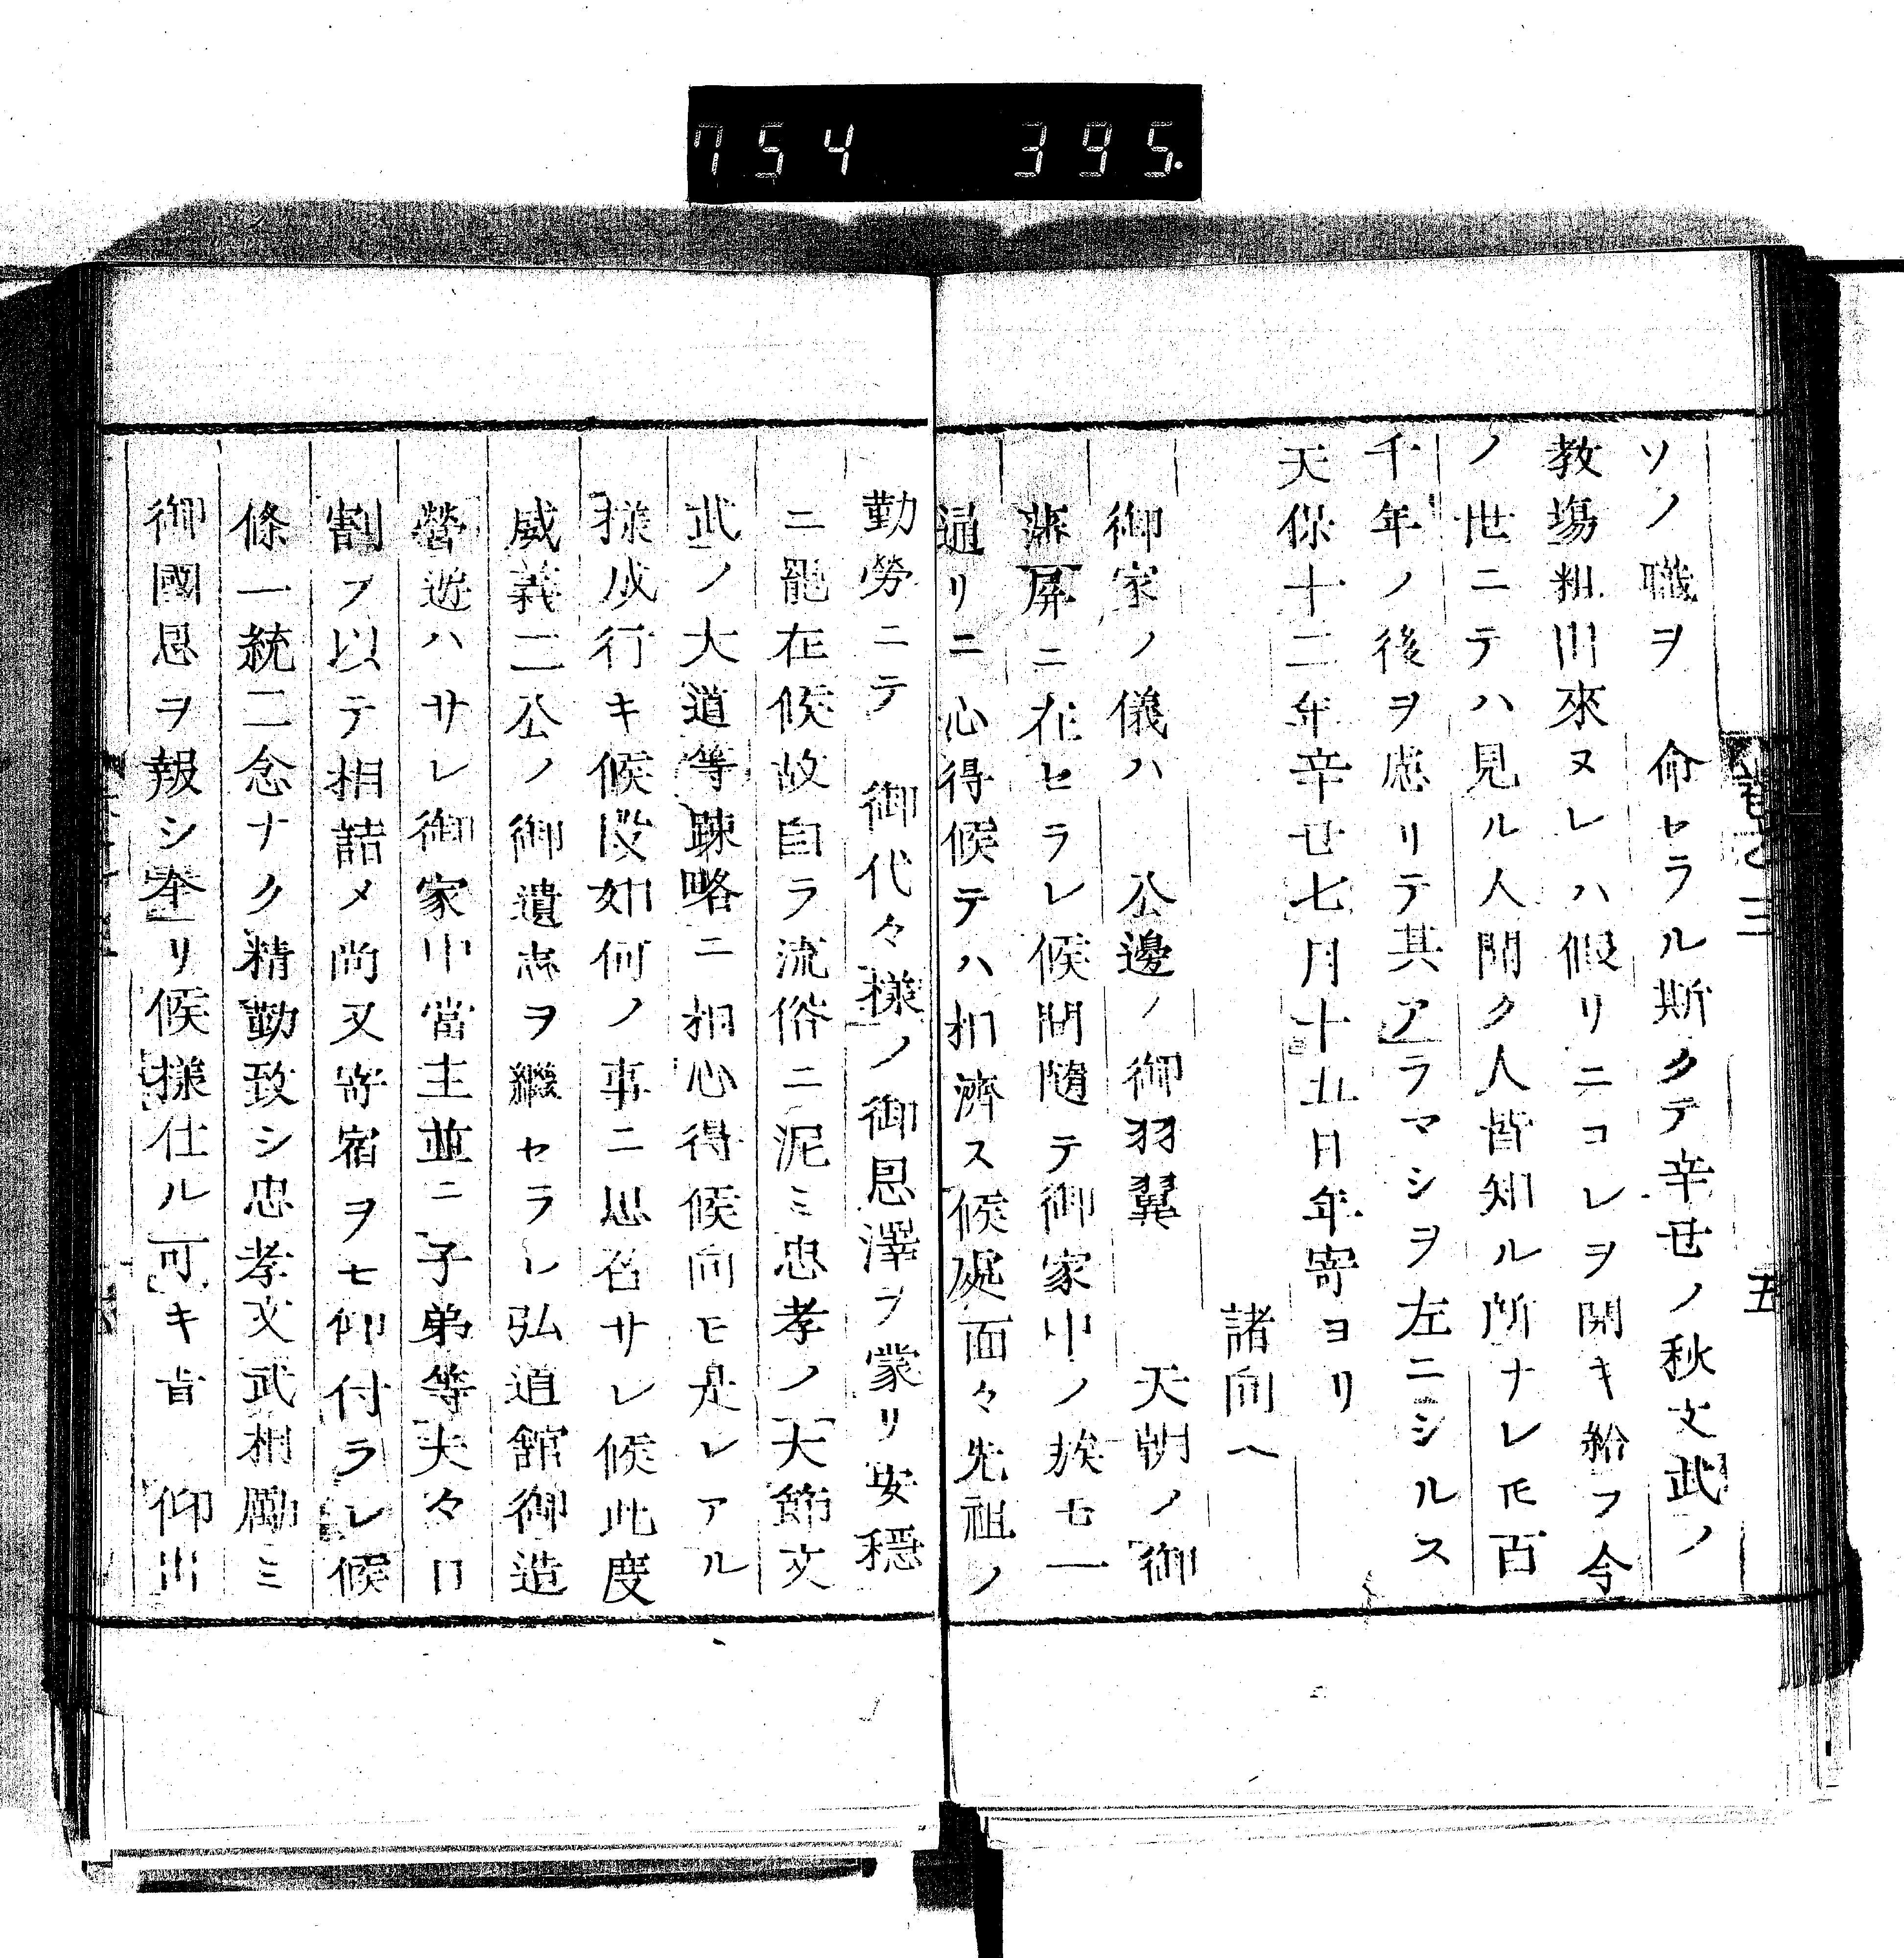 754 395.
卷之三 五
ソノ職ヲ 命セラル斯クテ辛丑ノ秋文武ノ
教塲粗出來ヌレハ假リニコレヲ開キ給フ今
ノ世ニテハ見ル人聞ク人皆知ル所ナレ𪜈百
千年ノ後ヲ慮リテ其アラマシヲ左ニシルス
天保十二年辛丑七月十五日年寄ヨリ
諸向ヘ
御家ノ儀ハ 公邊ノ御羽翼 天朝ノ御
藩屏ニ在セラレ候間隨テ御家中ノ族モ一
通リニ心得候テハ相濟ス候處面々先祖ノ
勤勞ニテ 御代々樣ノ御恩澤ヲ蒙リ安穩
ニ罷在候故自ラ流俗ニ泥ミ忠孝ノ大節文
武ノ大道等踈略ニ相心得候向モ是レアル
樣成行キ候段如何ノ事ニ思召サレ候此度
威義二公ノ御遺志ヲ繼セラレ弘道館御造
營遊ハサレ御家中當主並ニ子弟等夫々日
割ヲ以テ相詰メ尚又寄宿ヲモ仰付ラレ候
條一統二念ナク精勤致シ忠孝文武相勵ミ
御國恩ヲ報シ奉リ候樣仕ル可キ旨 仰出